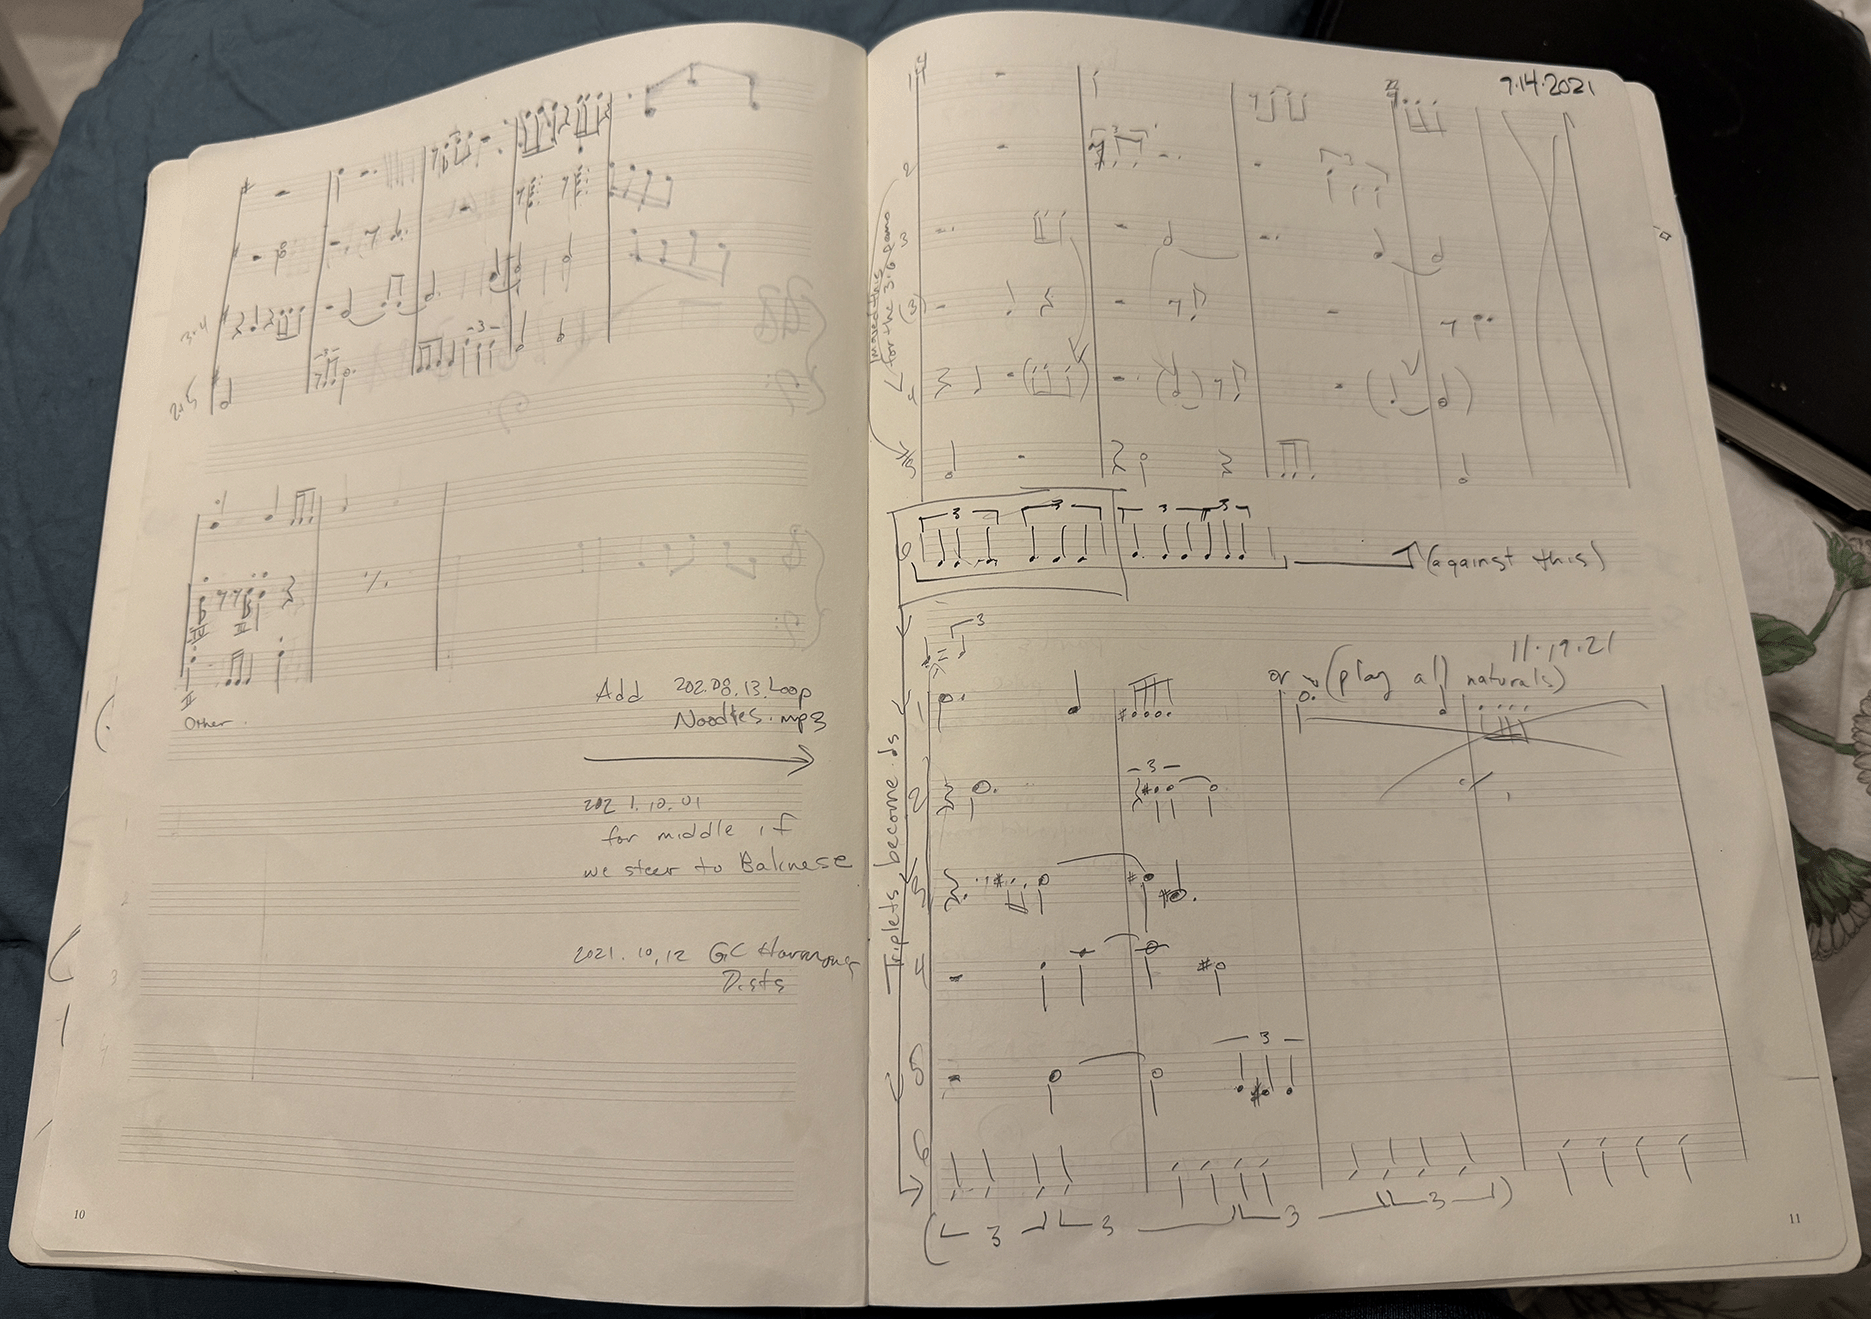 3+4
2+5
-3-
-3-
II
Other.
Add 202.08.13.Loop
Noodles.mp3
202 1.10.01
for middle if
we steer to Balinese
2021.10.12 GC Harmony
Dists
10
7.14.2021
1
2
3
(3)
4
5
for the 3.6 Demo
6
3
3
3
3
(against this)
3
11.19.21
or (play all naturals)
Triplets become ds
1
2
-3-
3
4
5
3
6
3
3
3
3
11